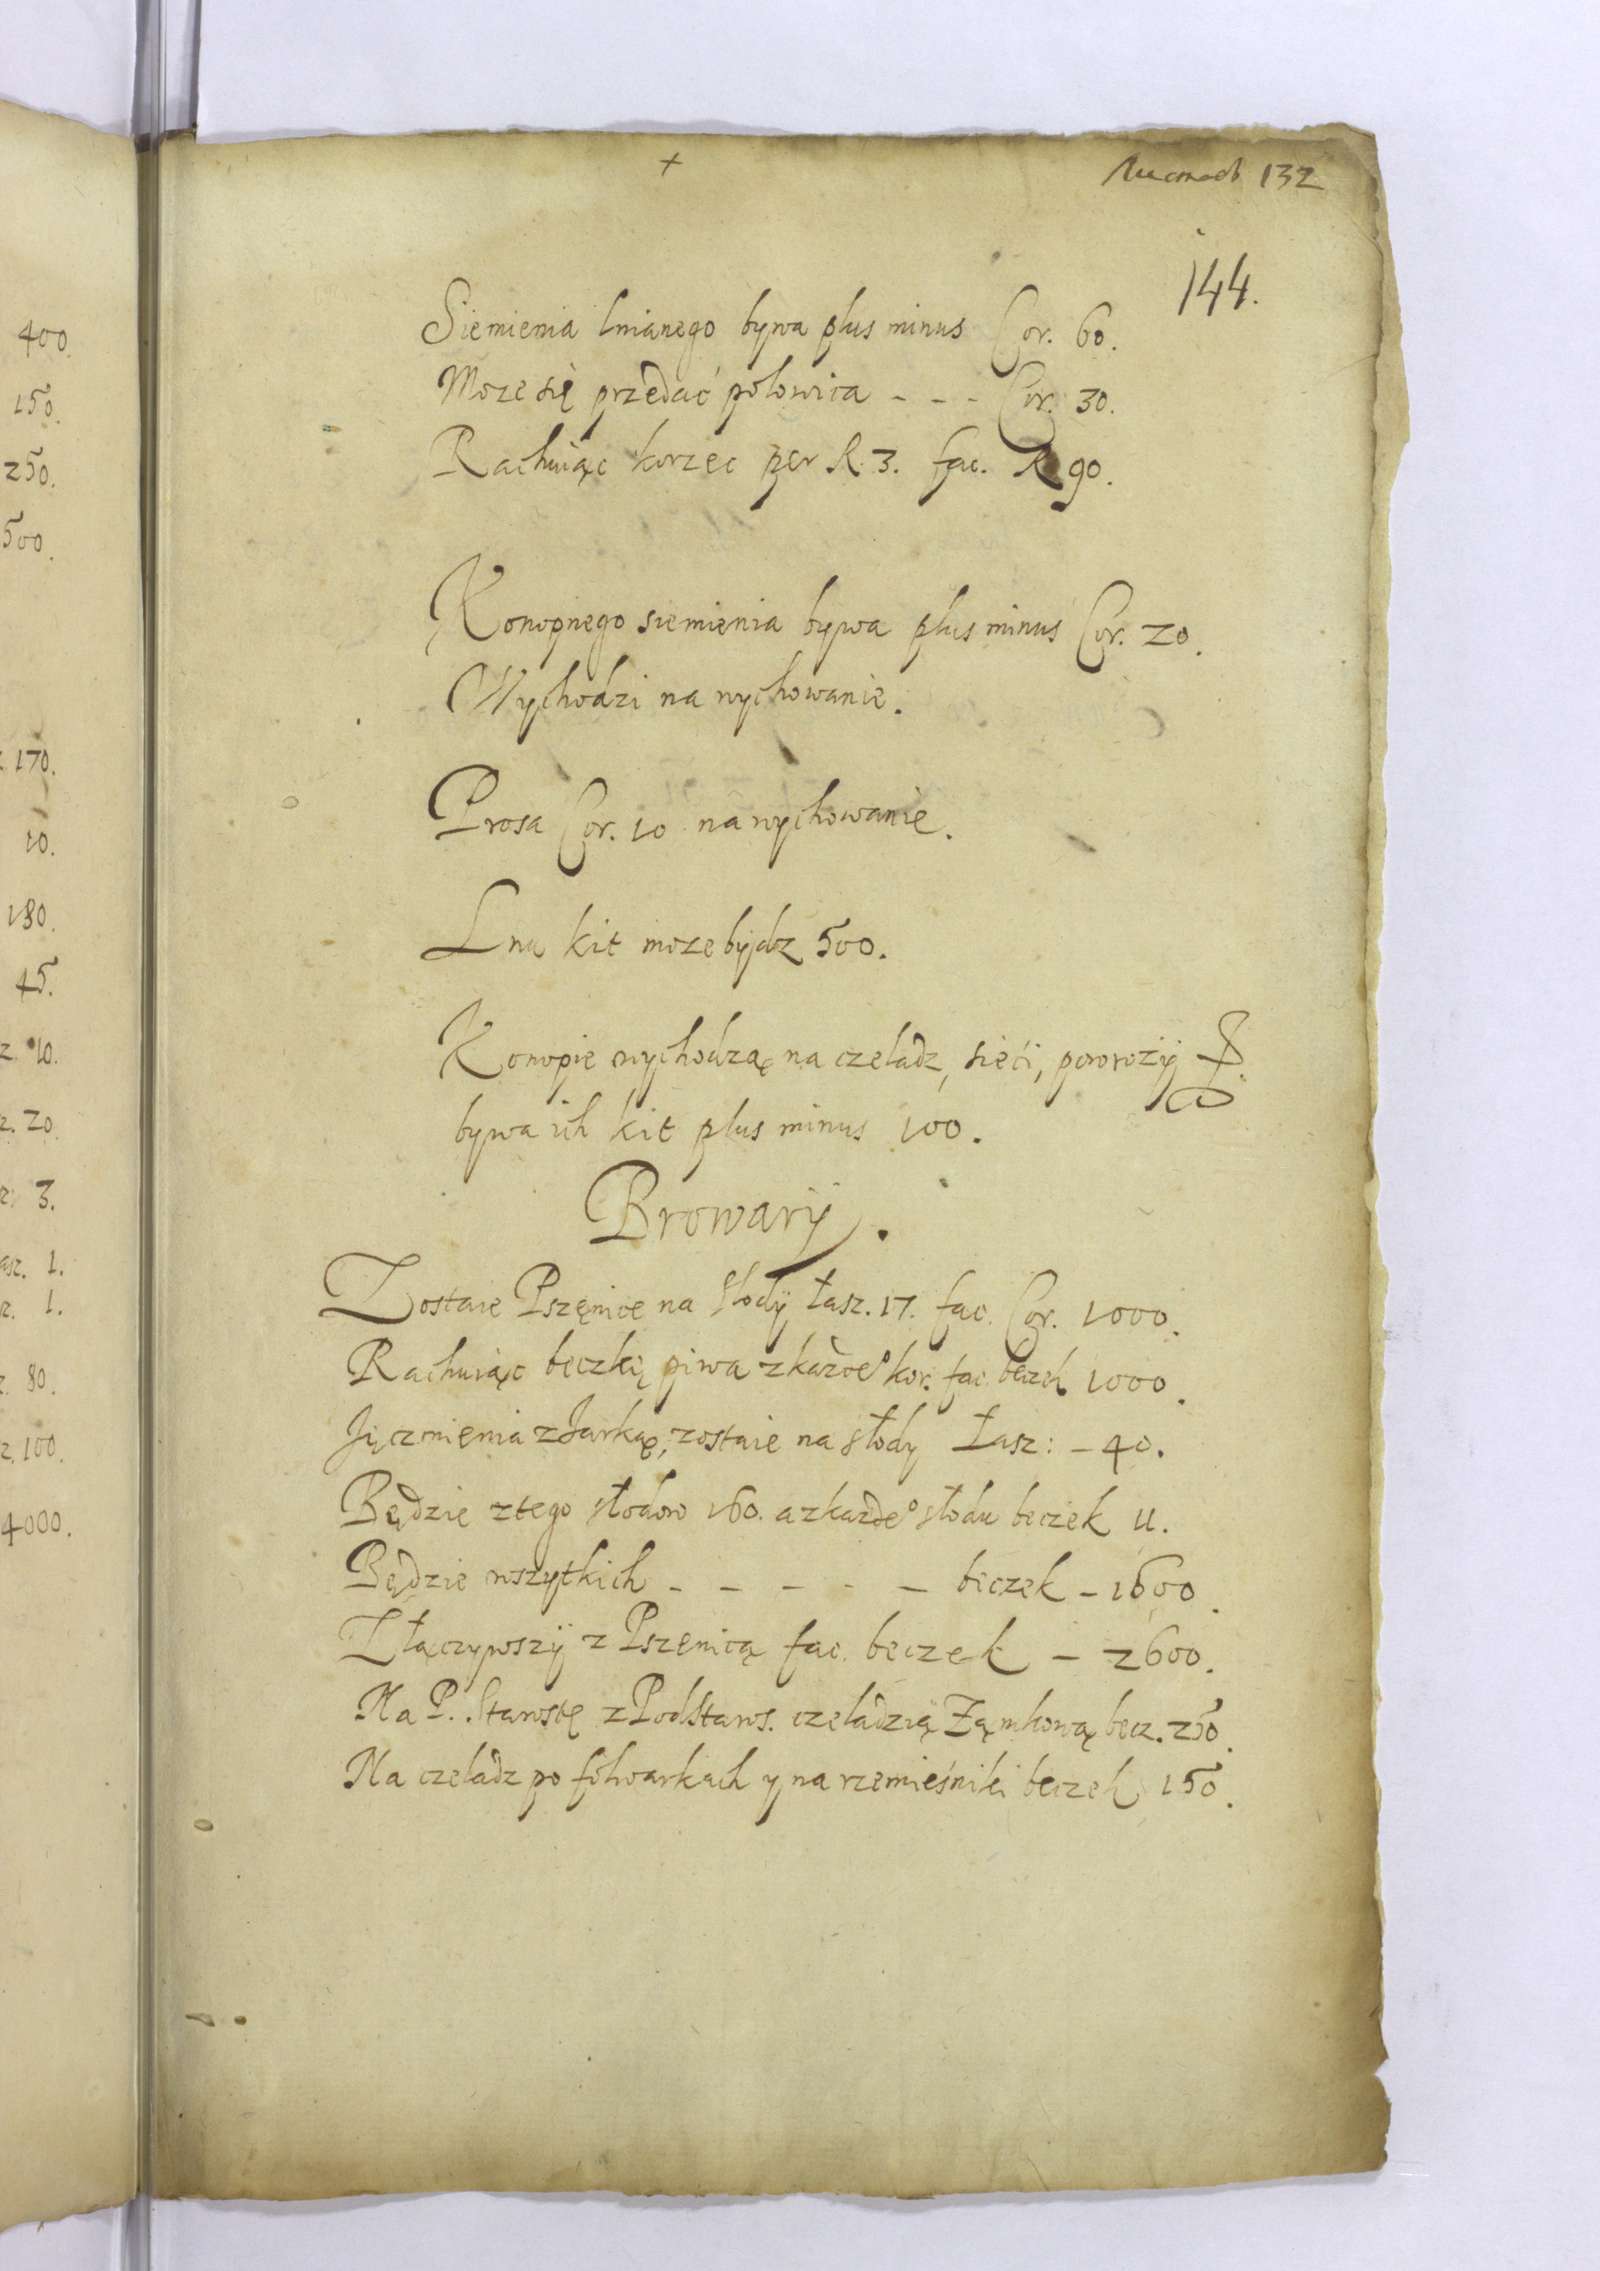 +
Листовъ 132
144.
400.
150.
250.
500.
170.
10.
180.
45.
10.
20.
3.
1.
1.
80.
100.
4000.
Siemienia lnianego bywa plus minus Cor. 60.
Moze się przedać połowica - - - Cor. 30.
Rachuiąc korzec per R. 3. fac. R 90.
Konopnego siemienia bywa plus minus Cor. 20.
Wychodzi na wychowanie.
Prosa Cor. 10 na wychowanie.
Lnu kit moze bydz 500.
Konopie wychodzą na czeladz, sieći, powrozy
bywa ich kit plus minus 100.
Browary.
Zostaie Pszęnice na słody łasz. 17. fac. Cor. 1000.
Rachuiąc beczkę piwa z każde° kor. fac. beczek 1000.
Jęczmienia z Jarką, zostaie na słody Łasz: - 40.
Będzie z tego słodow 160. a z każde° słodu beczek 11.
Będzie wszytkich - - - - - beczek - 1600.
Złączywszy z Pszenicą fac. beczek - 2600.
Na P. Starostę z Podstaros. czeladzią Ząmkową becz. 250.
Na czeladz po folwarkach y na rzemieśniki beczek 150.